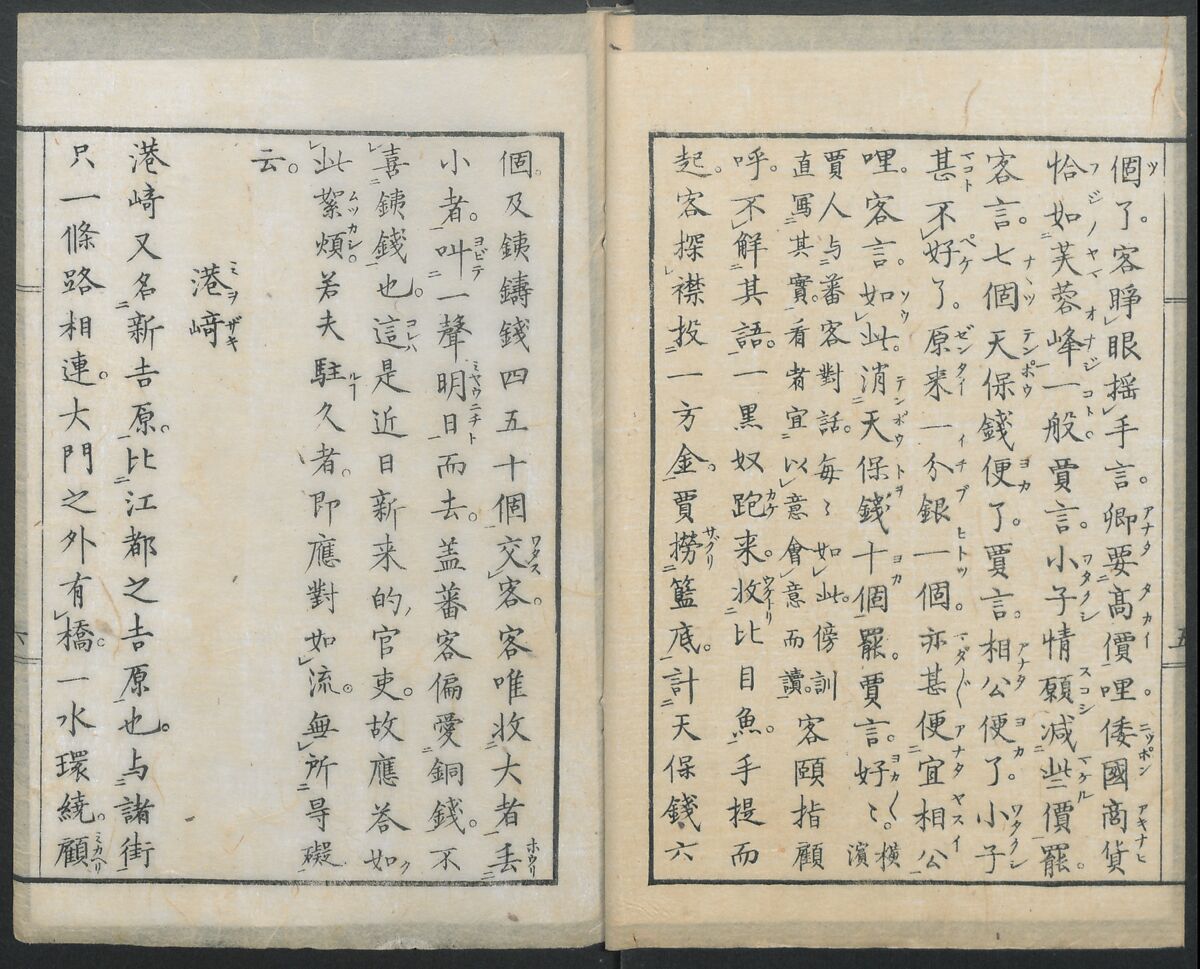 個了。客睜眼揺手言。卿要高價哩倭國商貨
恰如芙蓉峰一般。賈言。小子情願減些價罷。
客言。七個天保錢便了。賈言。相公便了。小子
甚不好了。原来一分銀一個。亦甚便宜相公
哩。客言。如此。消天保錢十個罷。賈言。好〻。橫濱
賈人与蕃客對話。每〻如此。傍訓
直寫其實。看者宜以意會意而讀。客頤指顧
呼。不解其語。一黑奴跑来。收比目魚。手提而
起。客探襟投一方金。賈撈籃底。計天保錢六
個。及銕鑄錢四五十個交客。客唯收大者。丟
小者。叫一聲明日而去。盖蕃客偏愛銅錢。不
喜銕錢也。這是近日新来的官吏。故應答如
此絮煩。若夫駐久者。即應對如流。無所㝵礙
云。
港﨑
港﨑又名新吉原。比江都之吉原也。与諸街
只一條路相連。大門之外有橋。一水環繞。顧